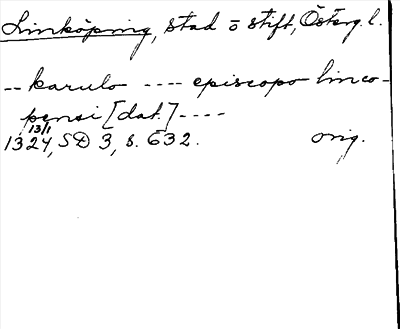 Linköping, stad o stift, Österg. l.
-- karulo ---- episcopo linco-
pensi [dat.] ----
13/1
1324, SD 3, s. 632. orig.